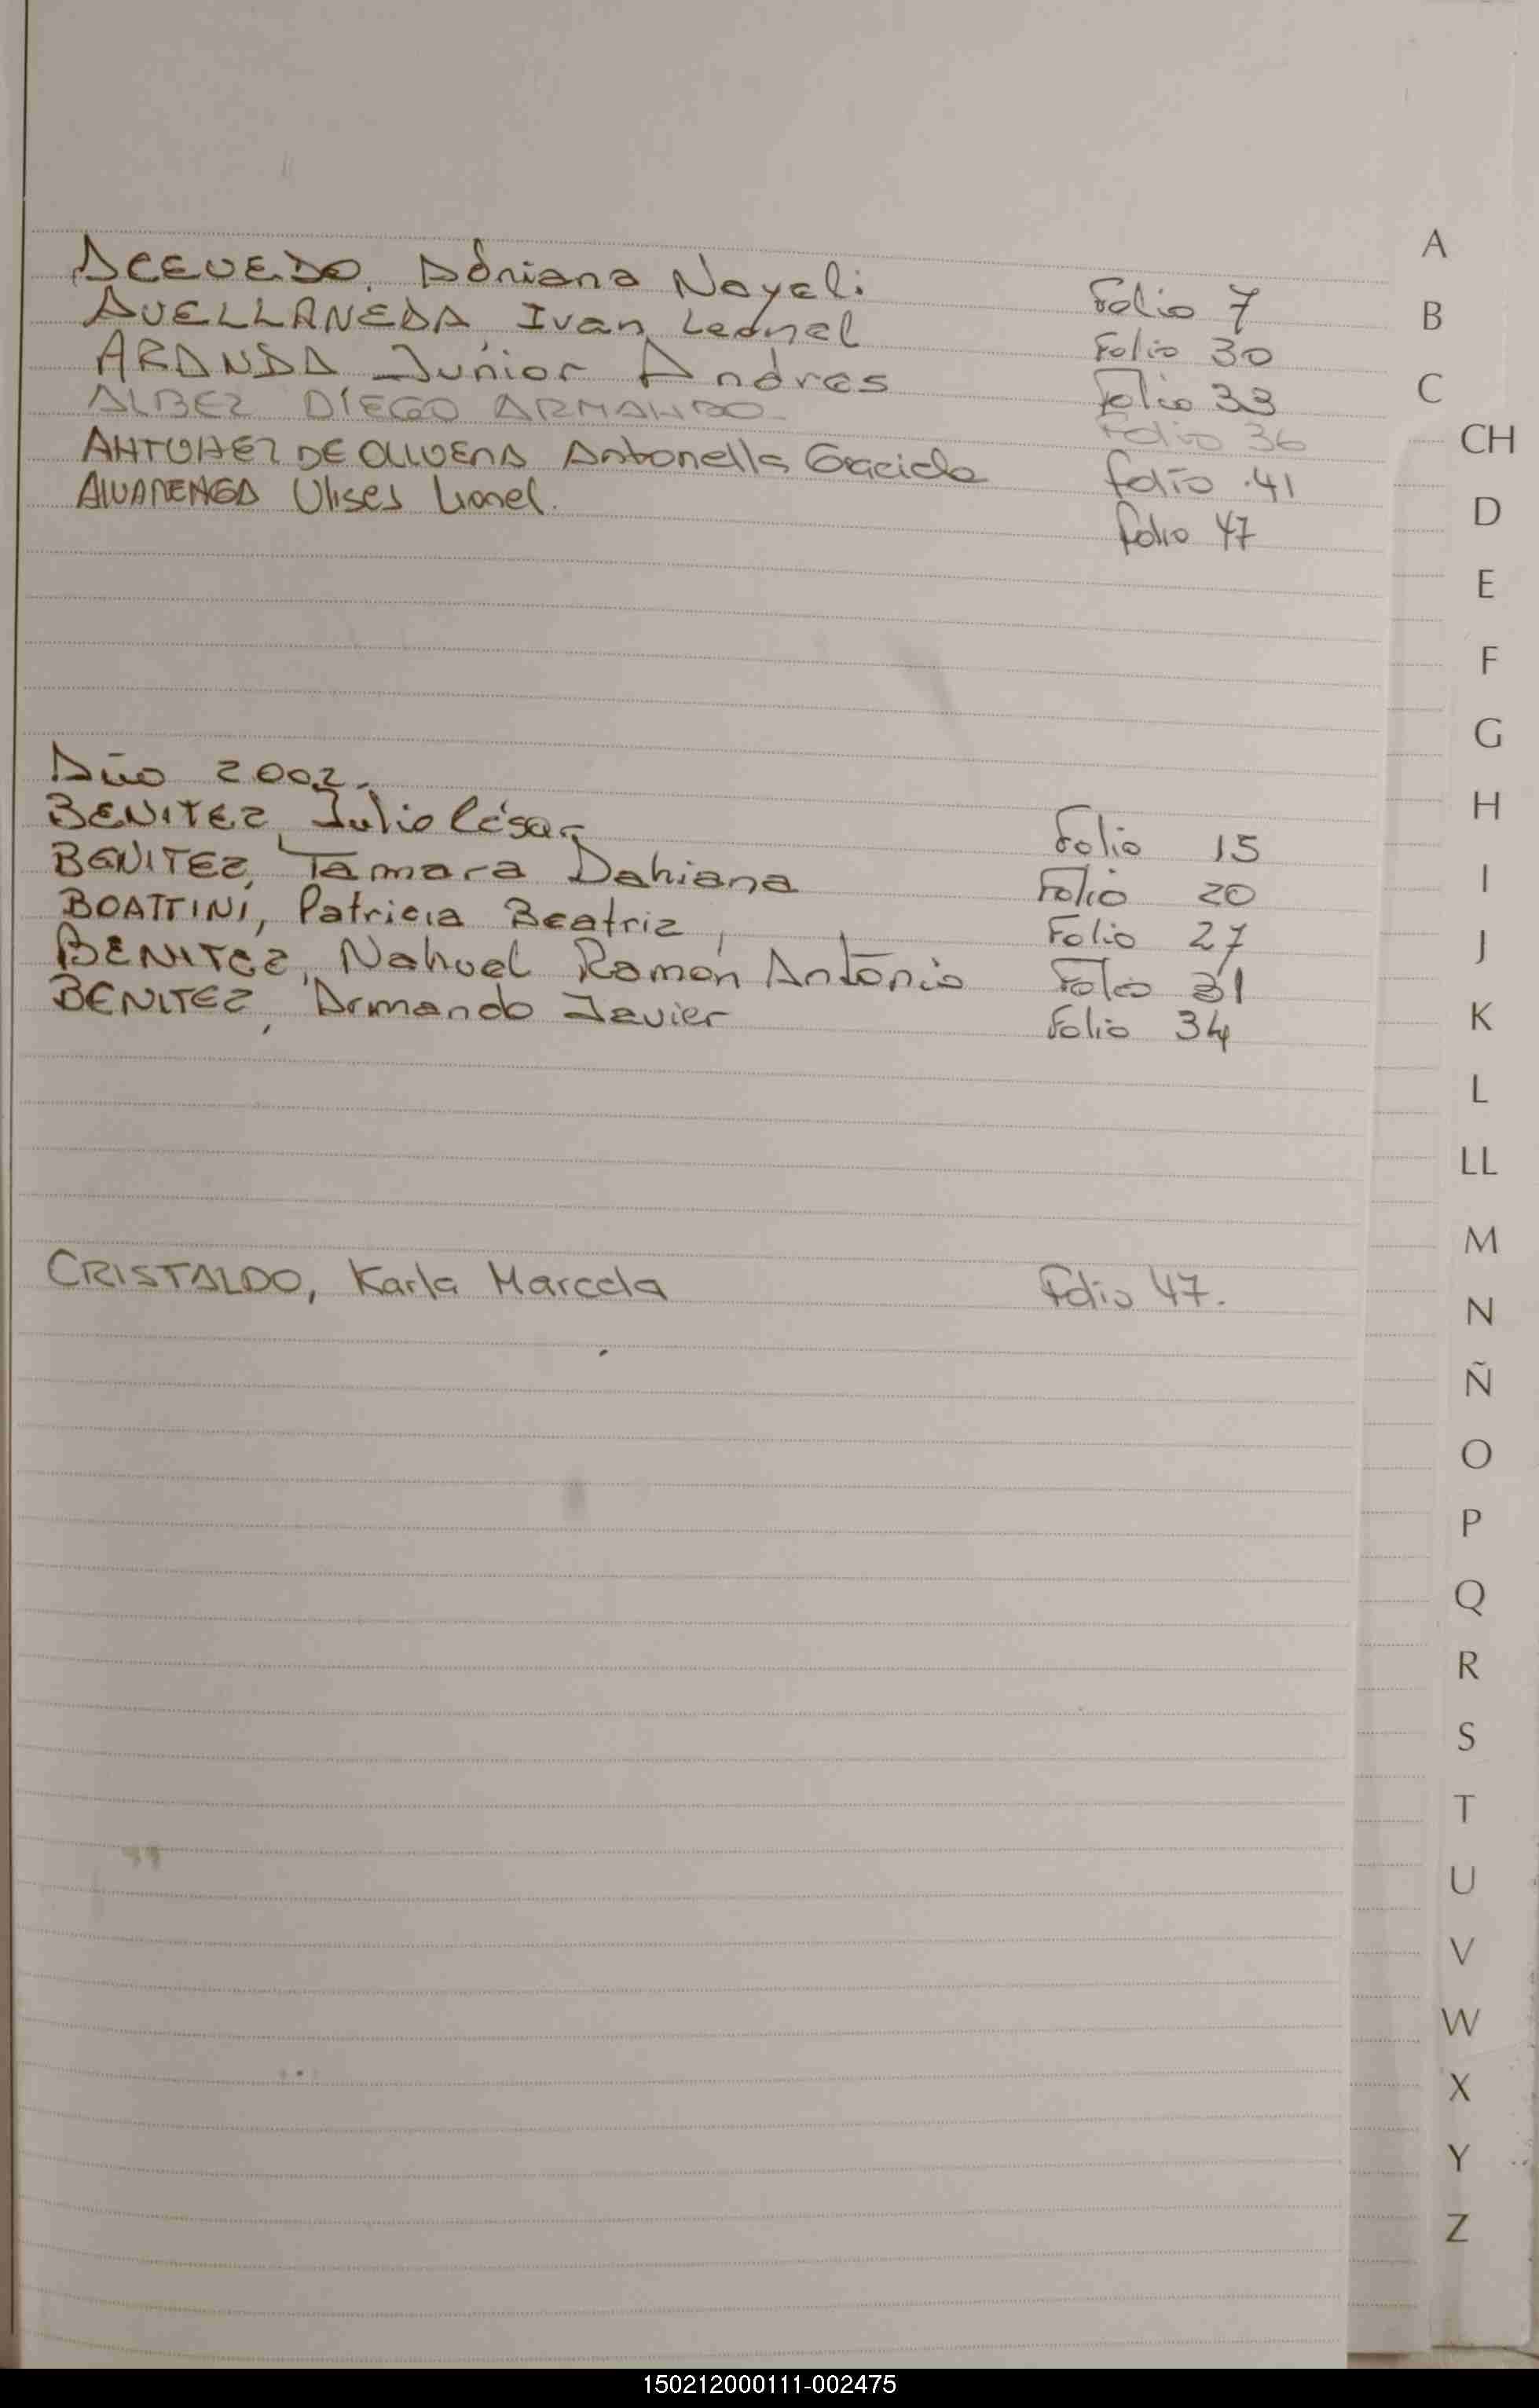 ACEVEDO, Adriana Nayeli Folio 7
AVELLANEDA, Ivan Leonel Folio 30
ARANDA Junior Andres Folio 33
ALBEZ DIEGO ARMANDO Folio 36
ANTUNEZ DE OLIVERA Antonella Graciela folio 41
ALVARENGA Ulises Lionel. folio 47
Año 2002.
BENITEZ, Julio César Folio 15
BENITEZ, Tamara Dahiana Folio 20
BOATTINI, Patricia Beatriz, Folio 27
BENITEZ, Nahuel Ramón Antonio Folio 31
BENITEZ, Armando Javier Folio 34
CRISTALDO, Karla Marcela Folio 47.
A
B
C
CH
D
E
F
G
H
I
J
K
L
LL
M
N
Ñ
O
P
Q
R
S
T
U
V
W
X
Y
Z
150212000111-002475